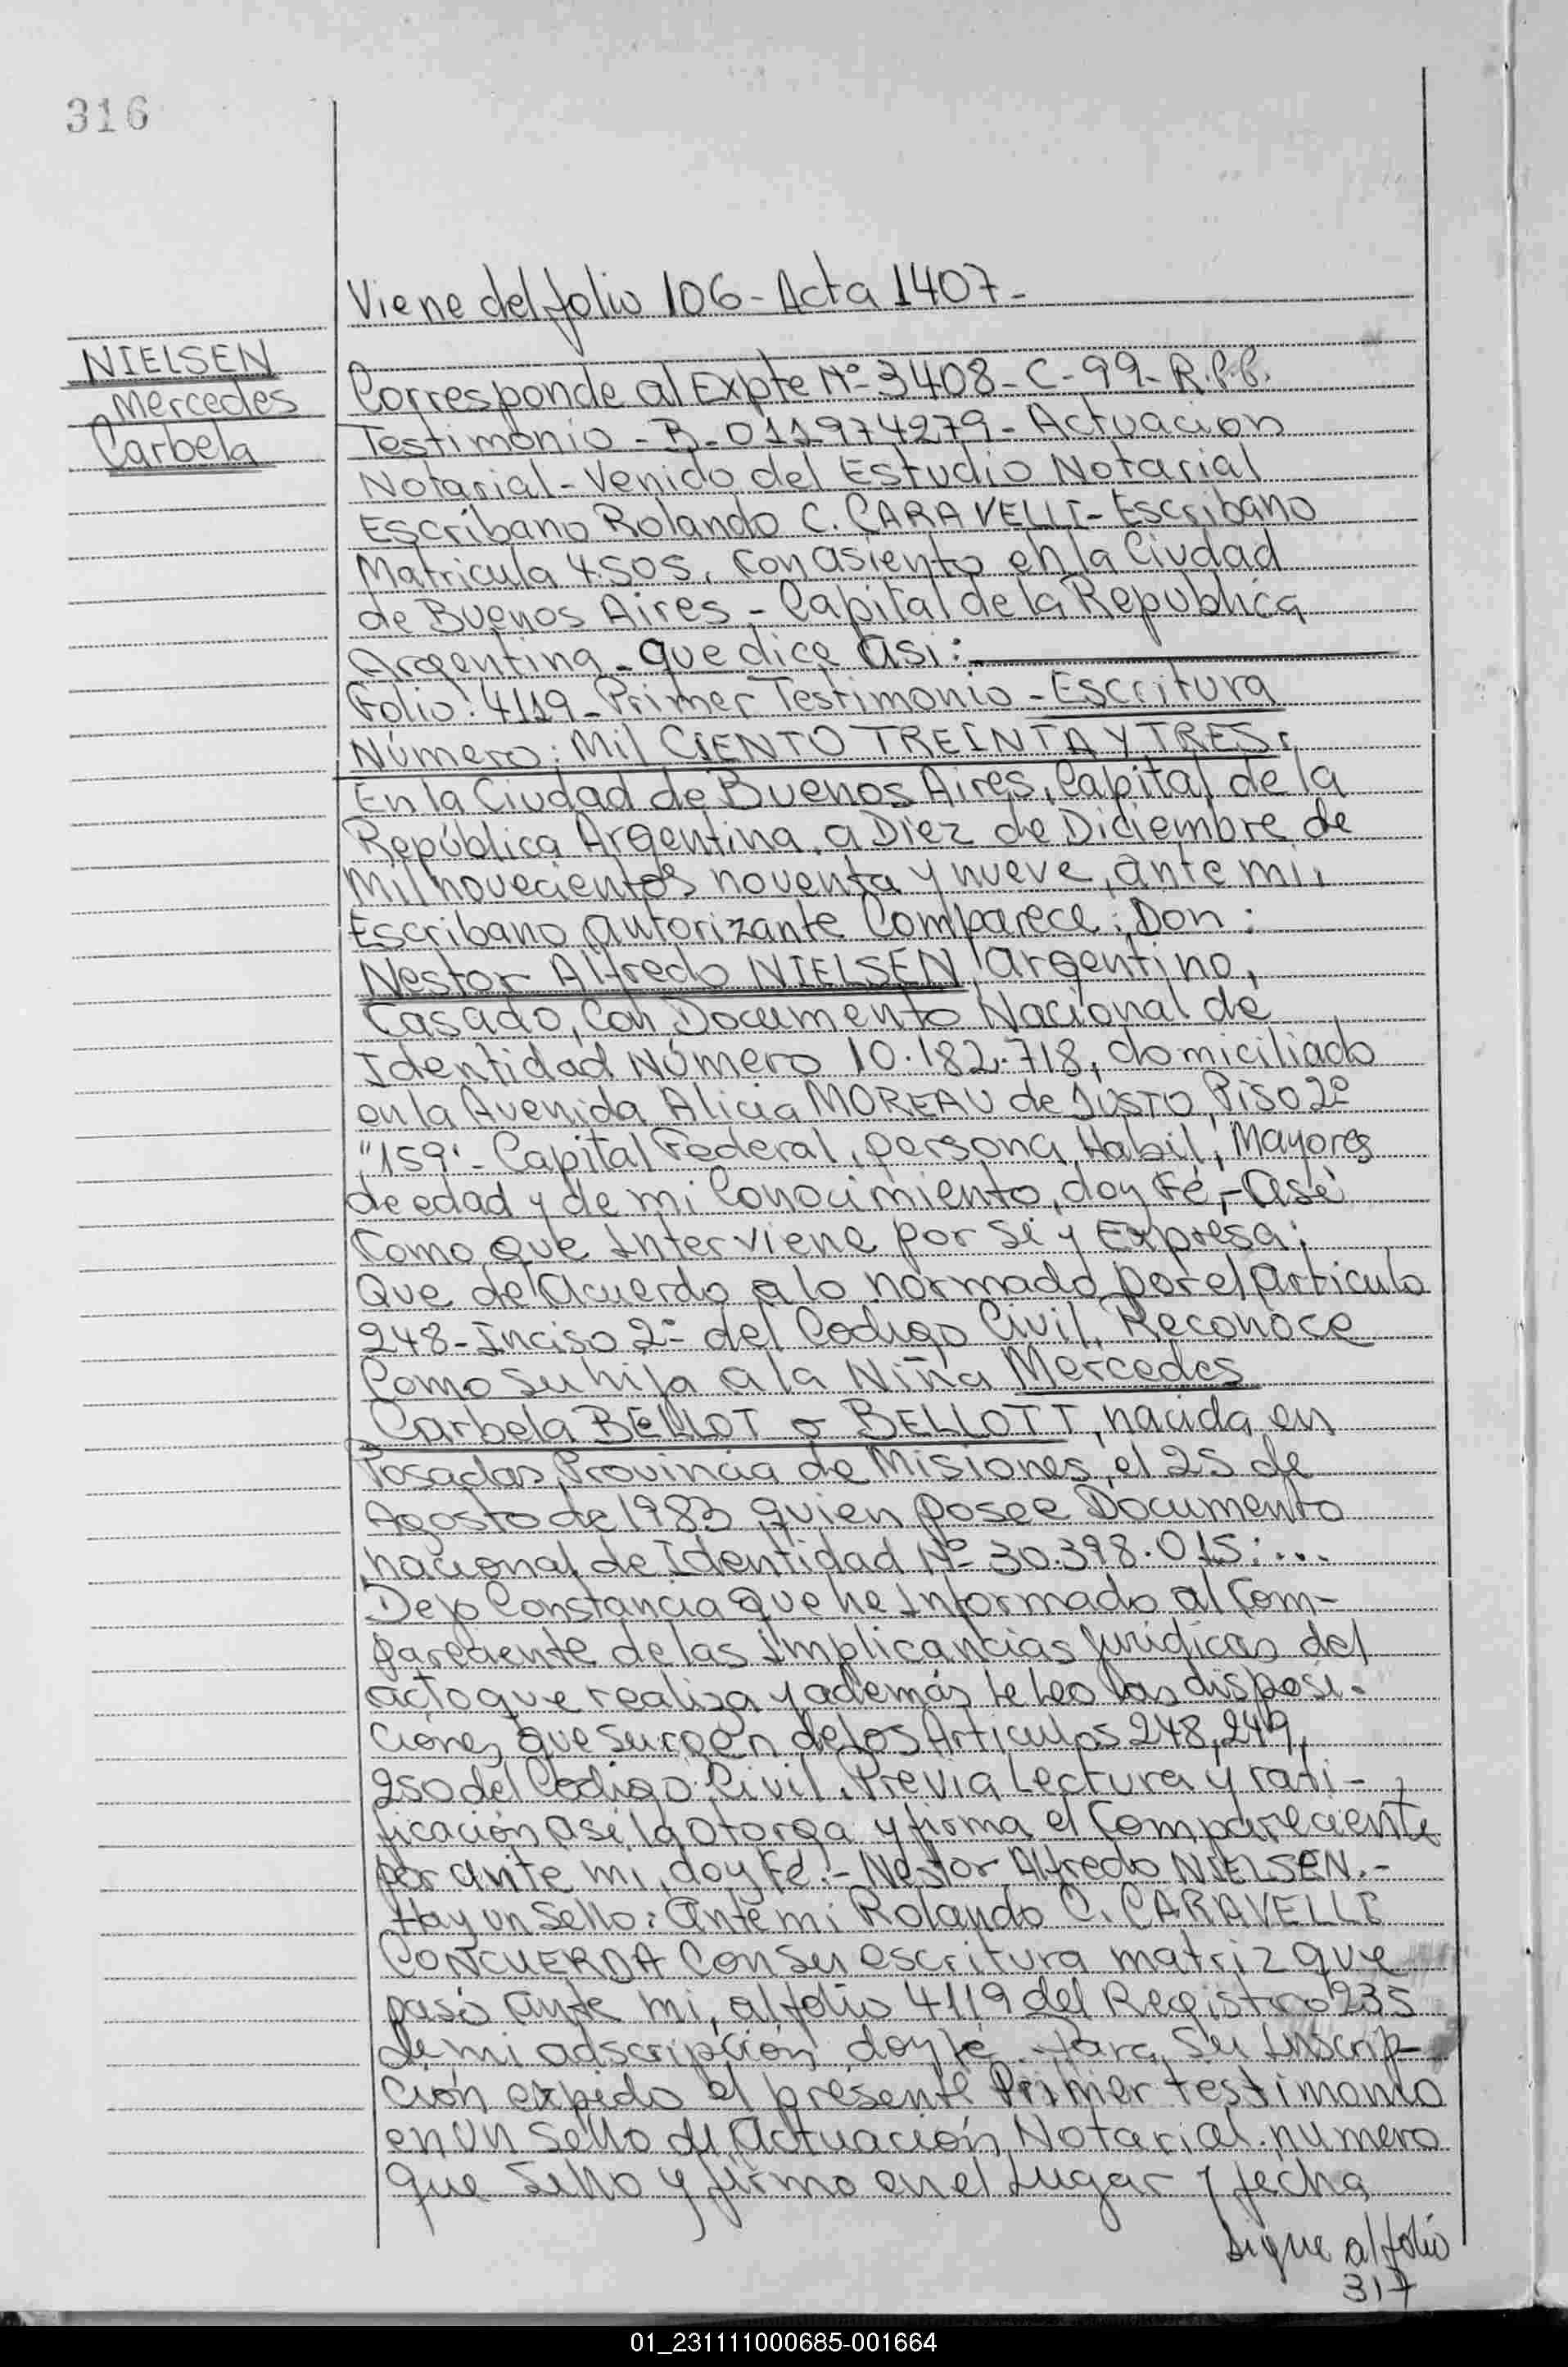 316
Viene del folio 106 - Acta 1407 -
NIELSEN
Mercedes
Carbela
Corresponde al Expte Nº 3408 - C - 99 - R.P.P.
Testimonio - B - 011974279 - Actuacion
Notarial - Venido del Estudio Notarial
Escribano Rolando C. CARAVELLI - Escribano
Matricula 4.505, con asiento en la Ciudad
de Buenos Aires - Capital de la Republica
Argentina - que dice asi:
Folio: 4119 - Primer Testimonio - Escritura
Número: Mil CIENTO TREINTA Y TRES.
En la Ciudad de Buenos Aires, Capital de la
República Argentina, a Diez de Diciembre de
Mil novecientos noventa y nueve, ante mi,
Escribano autorizante Comparece: Don:
Nestor Alfredo NIELSEN, argentino,
Casado, con Documento Nacional de
Identidad Número 10.182.718, domiciliado
en la Avenida Alicia MOREAU de JUSTO, Piso 2º
"159" - Capital Federal, persona Habil, Mayores
de edad y de mi Conocimiento, doy Fé, - Asi
Como que Interviene por si y Expresa:
Que de acuerdo a lo normado por el articulo
248 - Inciso 2º del Codigo Civil, Reconoce
Como su hija a la Niña Mercedes
Carbela BELLOT o BELLOTT, nacida en
Posadas, Provincia de Misiones, el 25 de
Agosto de 1983 quien posee Documento
nacional de Identidad Nº 30.398.015: ...
Dejo Constancia que he Informado al Com-
pareciente de las Implicancias Jurídicas del
acto que realiza y además le leo las disposi-
ciones que surgen de los Articulos 248, 249,
250 del Codigo Civil. Previa Lectura y rati-
ficación asi la otorga y firma el Compareciente
por ante mi, doy Fé. - Nestor Alfredo NIELSEN. -
Hay un Sello: Ante mi Rolando C. CARAVELLI
CONCUERDA Con su escritura matriz que
pasó ante mi, al folio 4119 del Registro 235
de mi adscripción doy fé. Para su Inscrip-
ción expido el presente Primer testimonio
en un Sello de Actuación Notarial. numero
que Sello y firmo en el Lugar y fecha
sigue al folio
317
01_231111000685-001664